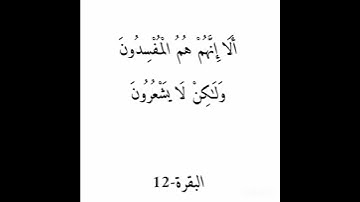 أَلَا إِنَّهُمْ هُمُ الْمُفْسِدُونَ
وَلَٰكِنْ لَا يَشْعُرُونَ
البقرة-12